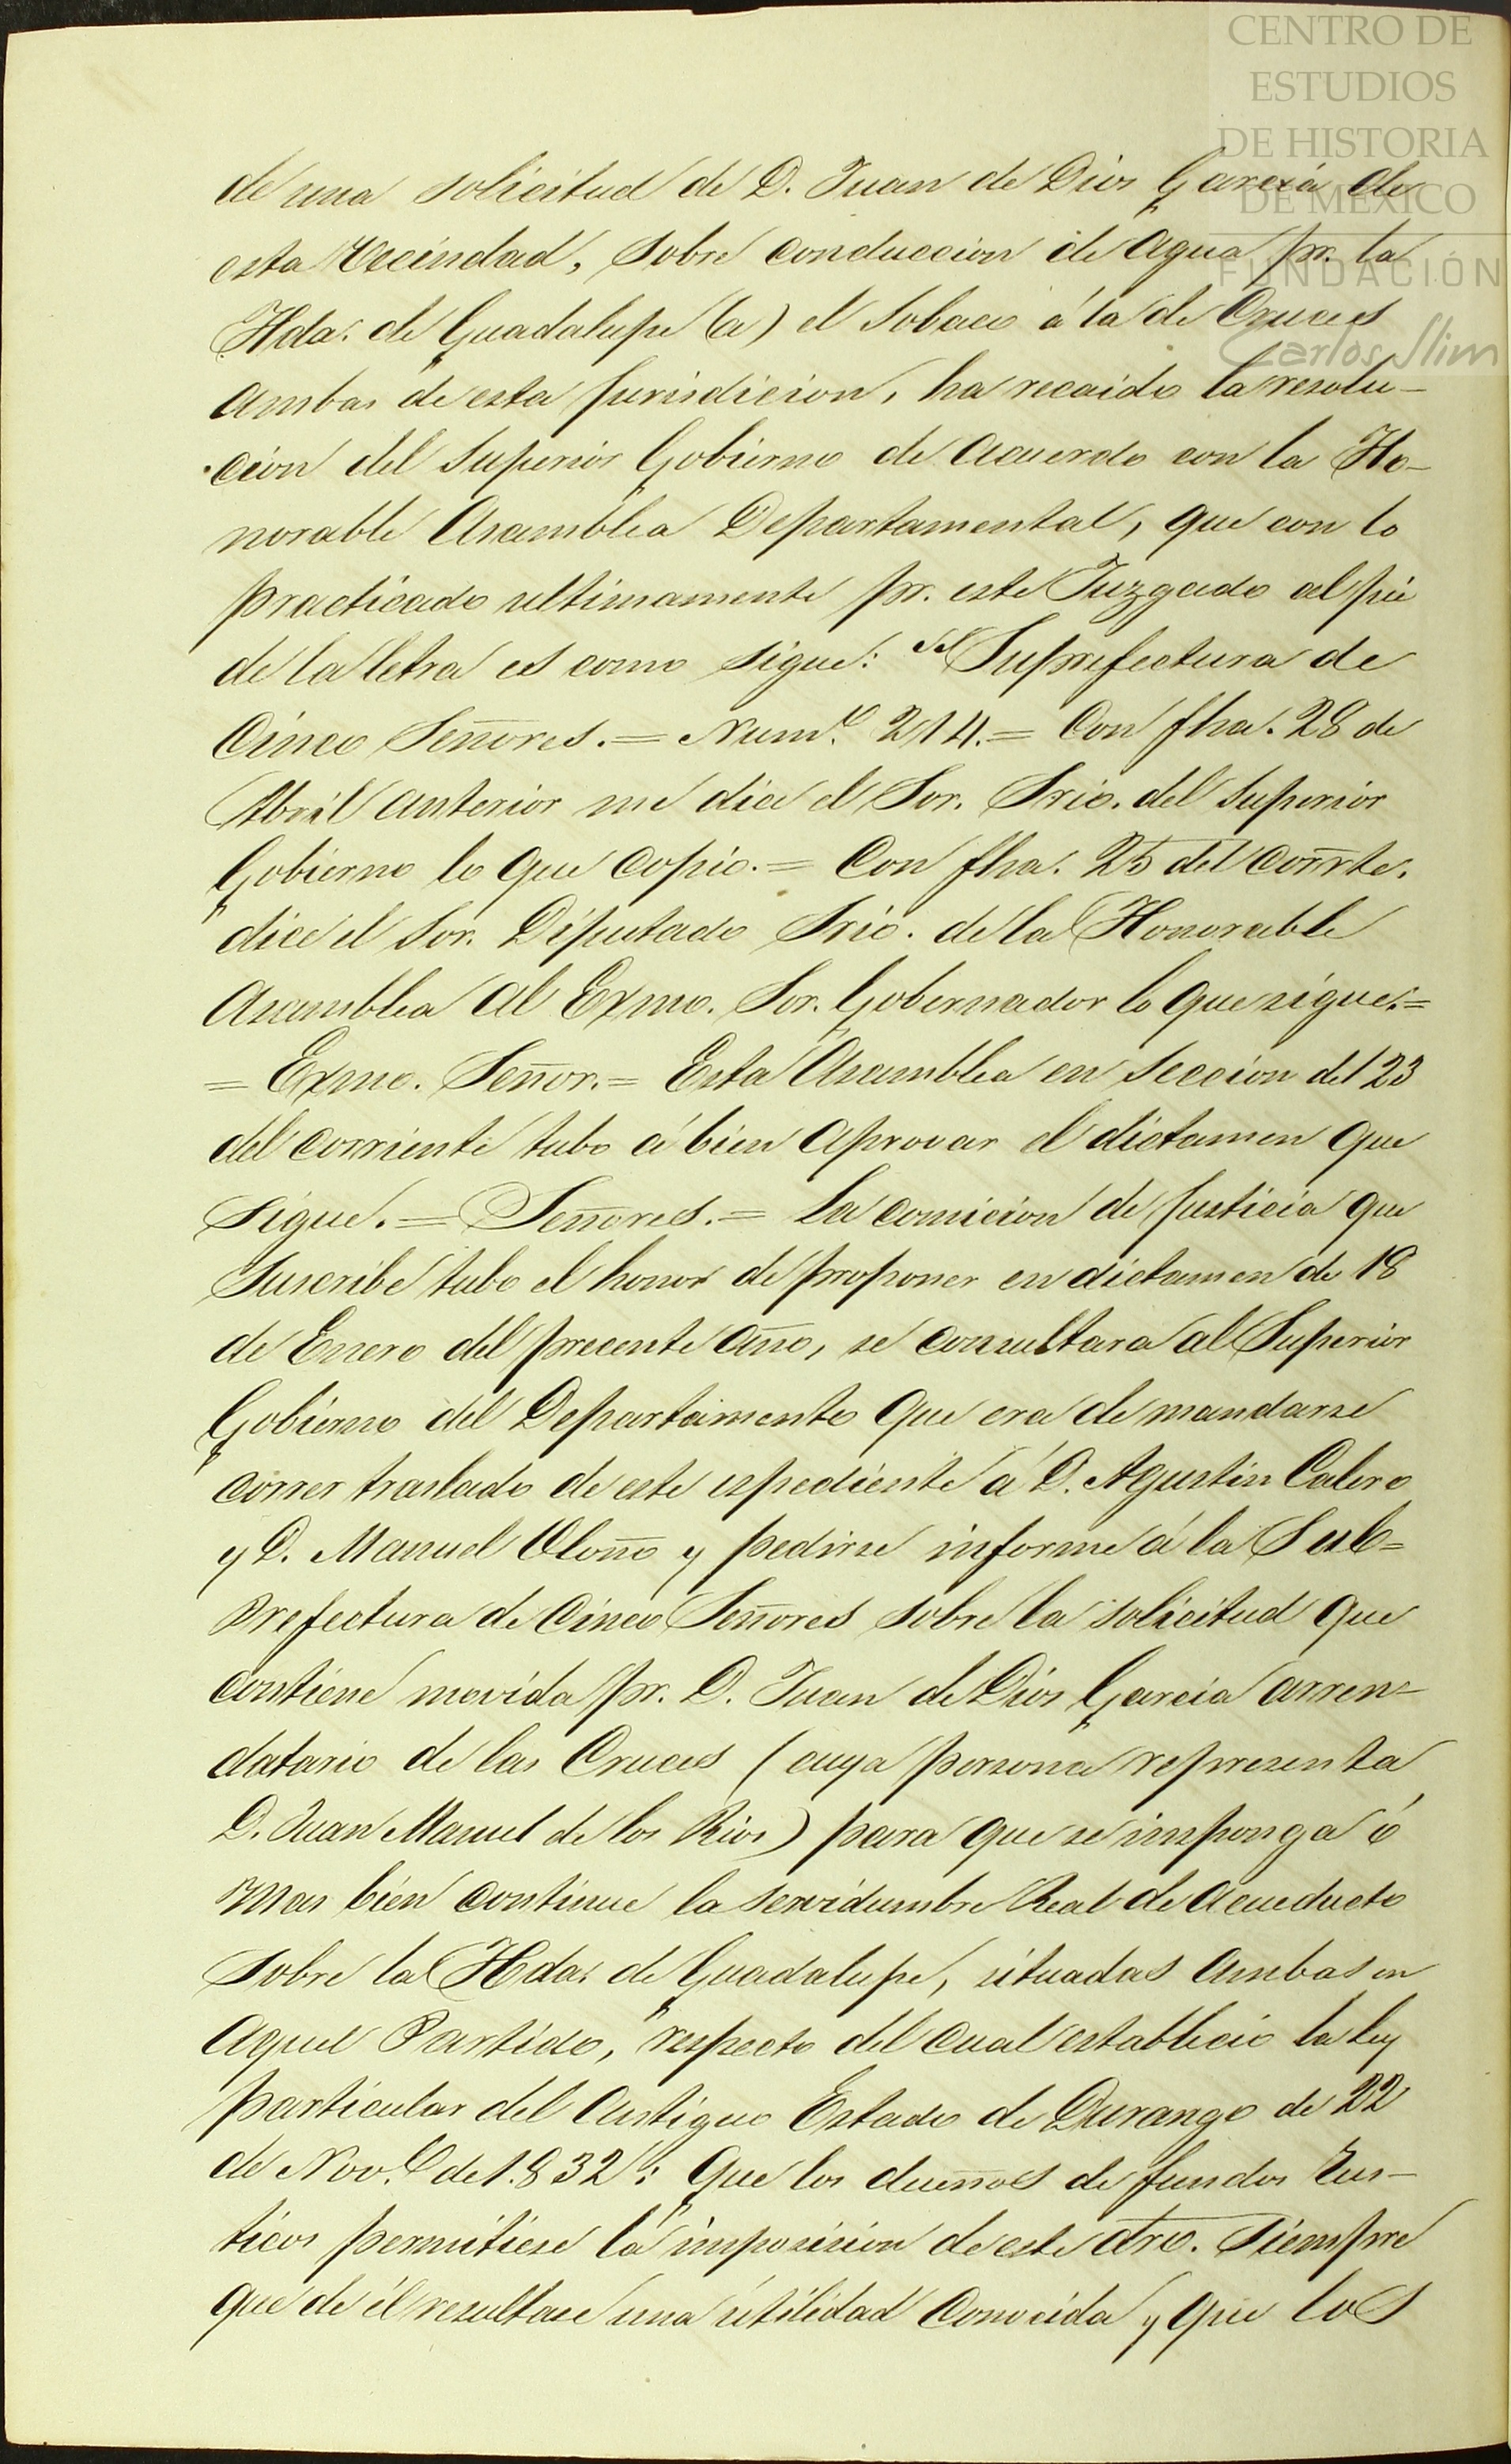 CENTRO DE
ESTUDIOS
DE HISTORIA
DE MÉXICO
FUNDACIÓN
Carlos Slim
de una solicitud de D. Juan de Dios García de
esta Vecindad, sobre conduccion de Agua pr. la
Hda. de Guadalupe (a) el Sobaco á la de Cruces
ambas de esta jurisdicion, ha recaido la resolu-
cion del Superior Gobierno de acuerdo con la Ho-
norable Asamblea Departamental, que con lo
practicado ultimamente pr. este Juzgado al pié
de la letra es como sigue: Suprefectura de
Cinco Señores.= Numº 214.= Con fha. 28 de
Abril anterior me dice el Sor. Srio. del Superior
Gobierno lo que copio.= Con fha. 25 del corrte.
dice el Sor. Diputado Srio. de la Honorable
Asamblea al Exmo. Sor. Gobernador lo que sigue.=
= Exmo. Señor.= Esta Asamblea en Seccion del 23
del corriente tubo á bien Aprovar el dictamen que
sigue.= Señores.= La comicion de justicia que
suscribe tubo el honor de proponer en dictamen de 18
de Enero del precente año, se consultara al Superior
Gobierno del Departamento que era de mandarse
correr traslado de este espediente á D. Agustin Calero
y D. Manuel Oloño y pedirse informe á la Sub=
Prefectura de Cinco Señores sobre la solicitud que
contiene movida pr. D. Juan de Dios Garcia arren-
datario de las Cruces (cuya persona representa
D. Juan Manuel de los Rios) para que se imponga ó
mas bien continue la servidumbre Real de acueducto
sobre la Hda. de Guadalupe, situadas ambas en
aquel Partido, respecto del cual establecio la ley
particular del Antiguo Estado de Durango de 22
de Nove. de 1.832: Que los dueños de fundos Rus-
ticos permitiese la imposision de este dro. Siempre
que de él resultase una utilidad conocida y que los